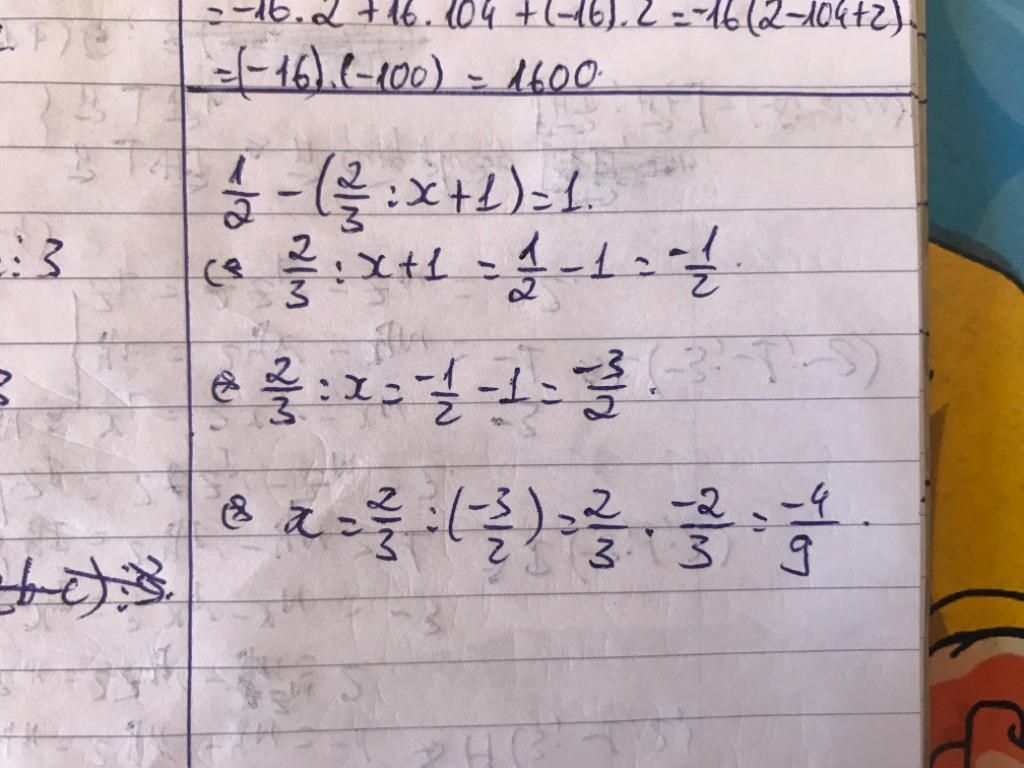 = -16 . 2 + 16 . 104 + (-16) . 2 = -16 (2 - 104 + 2)
= (-16) . (-100) = 1600.
1/2 - (2/3 : x + 1) = 1.
: 3
⇔ 2/3 : x + 1 = 1/2 - 1 = -1/2.
⇔ 2/3 : x = -1/2 - 1 = -3/2.
⇔ x = 2/3 : (-3/2) = 2/3 . -2/3 = -4/9.